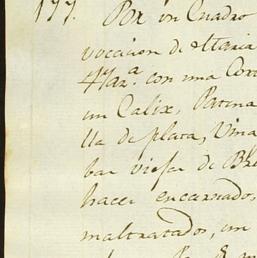 177. Por un Cuadro
vocacion de Maria
con una Coro
un Calix, Patena
lla de plata, Vina
bar viejas de
hacer encarnados,
maltratados, un